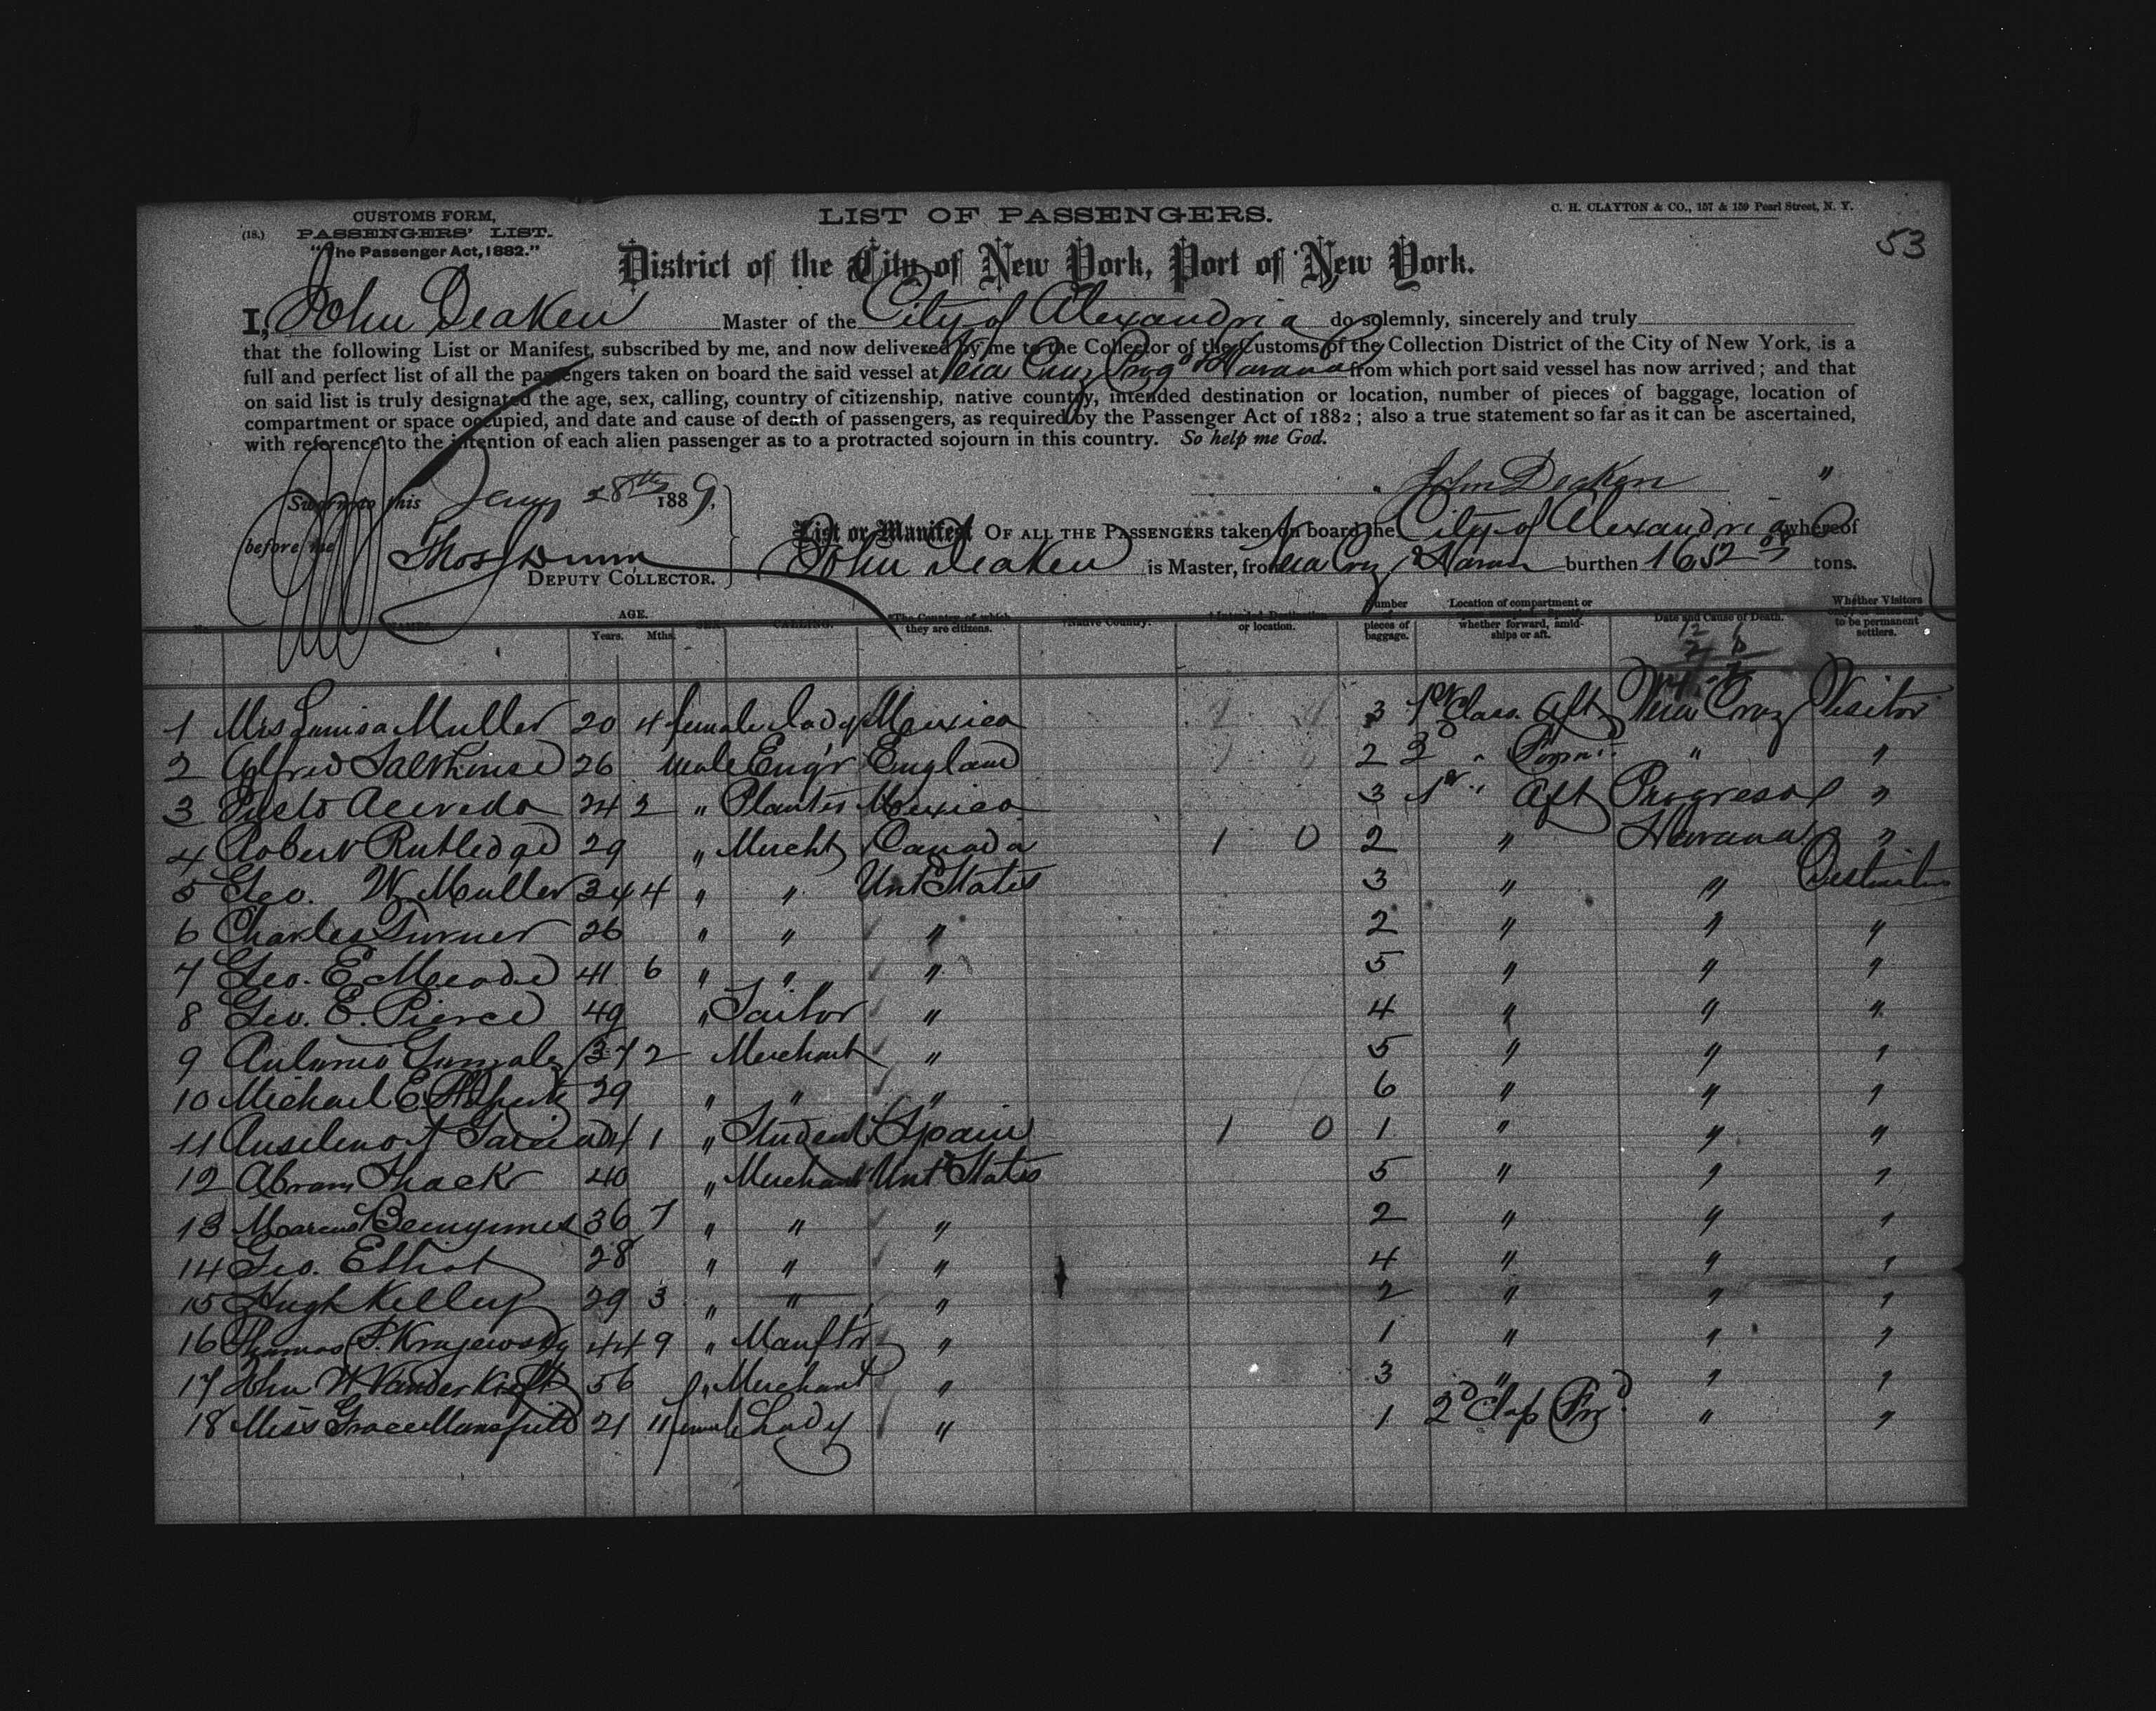 CUSTOMS FORM,
(18.) PASSENGERS' LIST.
"The Passenger Act, 1882."
LIST OF PASSENGERS.
C. H. CLAYTON & CO., 157 & 159 Pearl Street, N. Y.
53
District of the City of New York, Port of New York.
I, John Deaken Master of the City of Alexandria do solemnly, sincerely and truly
that the following List or Manifest, subscribed by me, and now delivered by me to the Collector of the Customs of the Collection District of the City of New York, is a
full and perfect list of all the passengers taken on board the said vessel at Vera Cruz Prog° & Havana from which port said vessel has now arrived; and that
on said list is truly designated the age, sex, calling, country of citizenship, native country, intended destination or location, number of pieces of baggage, location of
compartment or space occupied, and date and cause of death of passengers, as required by the Passenger Act of 1882; also a true statement so far as it can be ascertained,
with reference to the intention of each alien passenger as to a protracted sojourn in this country. So help me God.
Sworn to this Jany 28th 1889,
John Deaken "
before me Thos Dunn
DEPUTY COLLECTOR.
List or Manifest OF ALL THE PASSENGERS taken on board the City of Alexandria whereof
John Deaken is Master, from Vera Cruz & Havana burthen 1652 tons.
No. NAMES. AGE. Years. Mths. SEX. CALLING. The Country of which they are citizens. Native Country. Intended Destination or location. Number of pieces of baggage. Location of compartment or whether forward, amidships or aft. Date and Cause of Death. Whether Visitors to be permanent settlers.
1 Mrs Louisa Muller 20 4 female lady Mexico 3 1st Class Aft Vera Cruz Visitor
2 Alfred Salthouse 26 male Eng'r England 2 2d " " "
3 Acevedo 24 2 " Planter Mexico 3 1st " Aft Progreso "
4 Robert Rutledge 29 " Mercht Canada 1 0 2 " Havana "
5 Geo. W. Muller 34 4 " " Unt States 3 " "
6 Charles Turner 26 " " " 2 " " "
7 Geo. E. Meade 41 6 " " " 5 " " "
8 Geo. E. Pierce 49 " Tailor " 4 " " "
9 Antonio Gonzalez 37 2 Merchant " 5 " " "
10 Michael E. 29 " " " 6 " " "
11 Anselmo A Garcia 21 1 " Student Spain 1 0 1 " " "
12 Abram Shack 40 " Merchant Unt States 5 " " "
13 Marcus 36 7 " " " 2 " " "
14 Geo. Elliot 28 " " " 4 " " "
15 Hugh Kelley 29 3 " " " 2 " " "
16 Thomas F. Krajewsky 44 9 " Manftr " 1 " " "
17 John W Vanderkieft 56 " Merchant " 3 " " "
18 Miss Grace Mansfield 21 11 female Lady " 1 2d Class " "